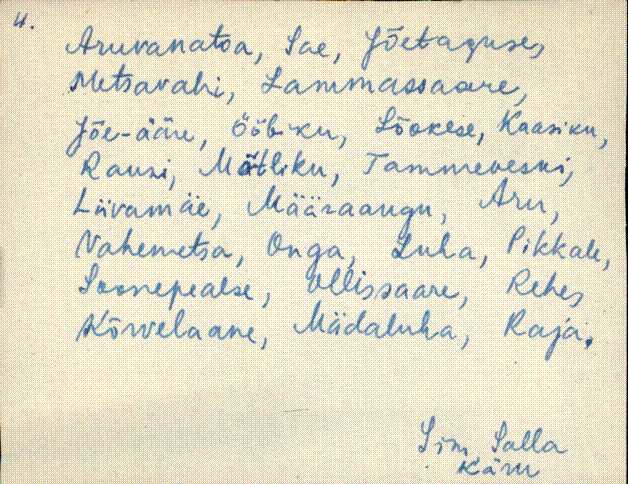 4.
Aruvanatoa, Sae, Jõetaguse,
Metsavahi, Lammassaare,
Jõe-ääre, Ööbiku, Lõokese, Kaasiku,
Rausi, Mätliku, Tammeveski,
Liivamäe, Määraangu, Aru,
Vahemetsa, Onga, Luha, Pikkale,
Soonepealse, Ollissaare, Rehe,
Kõrvelaane, Mädaluha, Raja.
Salla
Käru